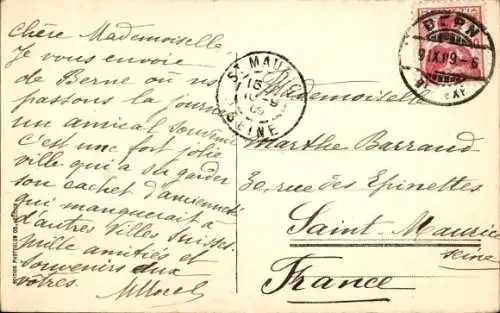 Chère Mademoiselle
Je vous envoie
de Berne où ns
passons la journée
un amical souvenir
C'est une fort jolie
ville qui a su garder
son cachet d'ancienneté
qui manquerait à
d'autres villes suisses.
Mille amitiés et
souvenirs aux
vôtres.
HELVETIA
BERN
9.IX.09-6
ST MAURICE
SEINE
Mademoiselle
Marthe Barraud
30, rue des Epinettes
Saint-Maurice
Seine
France